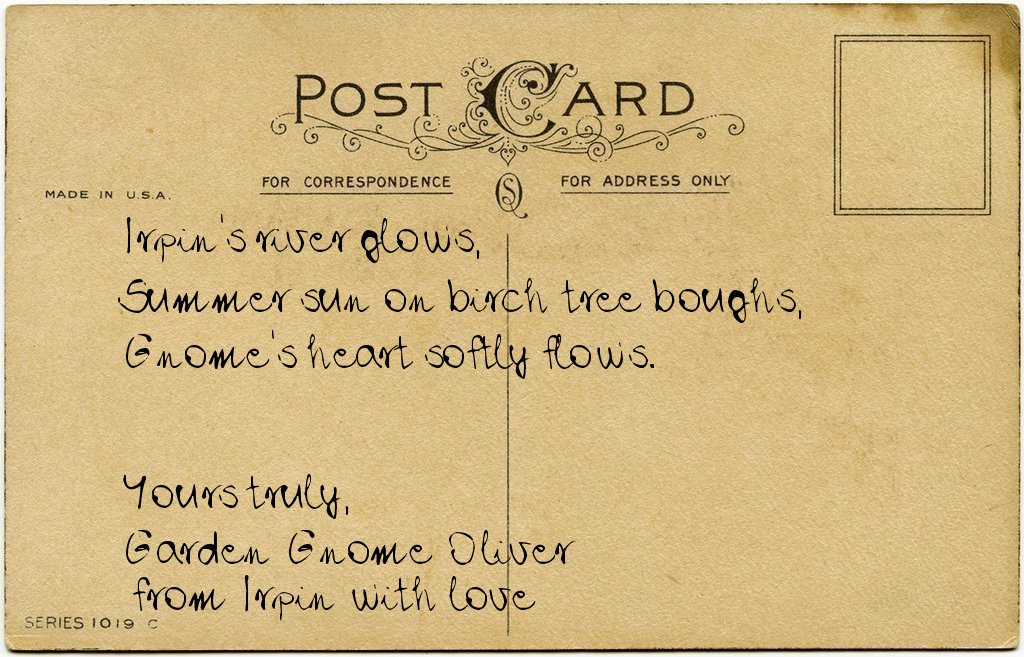 POST CARD
FOR CORRESPONDENCE
FOR ADDRESS ONLY
MADE IN U.S.A.
Irpin's river glows,
Summer sun on birch tree boughs,
Gnome's heart softly flows.
Yours truly,
Garden Gnome Oliver
from Irpin with love
SERIES 1019 C